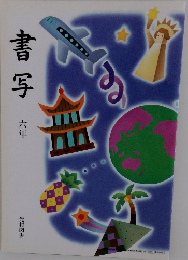 書写
六年